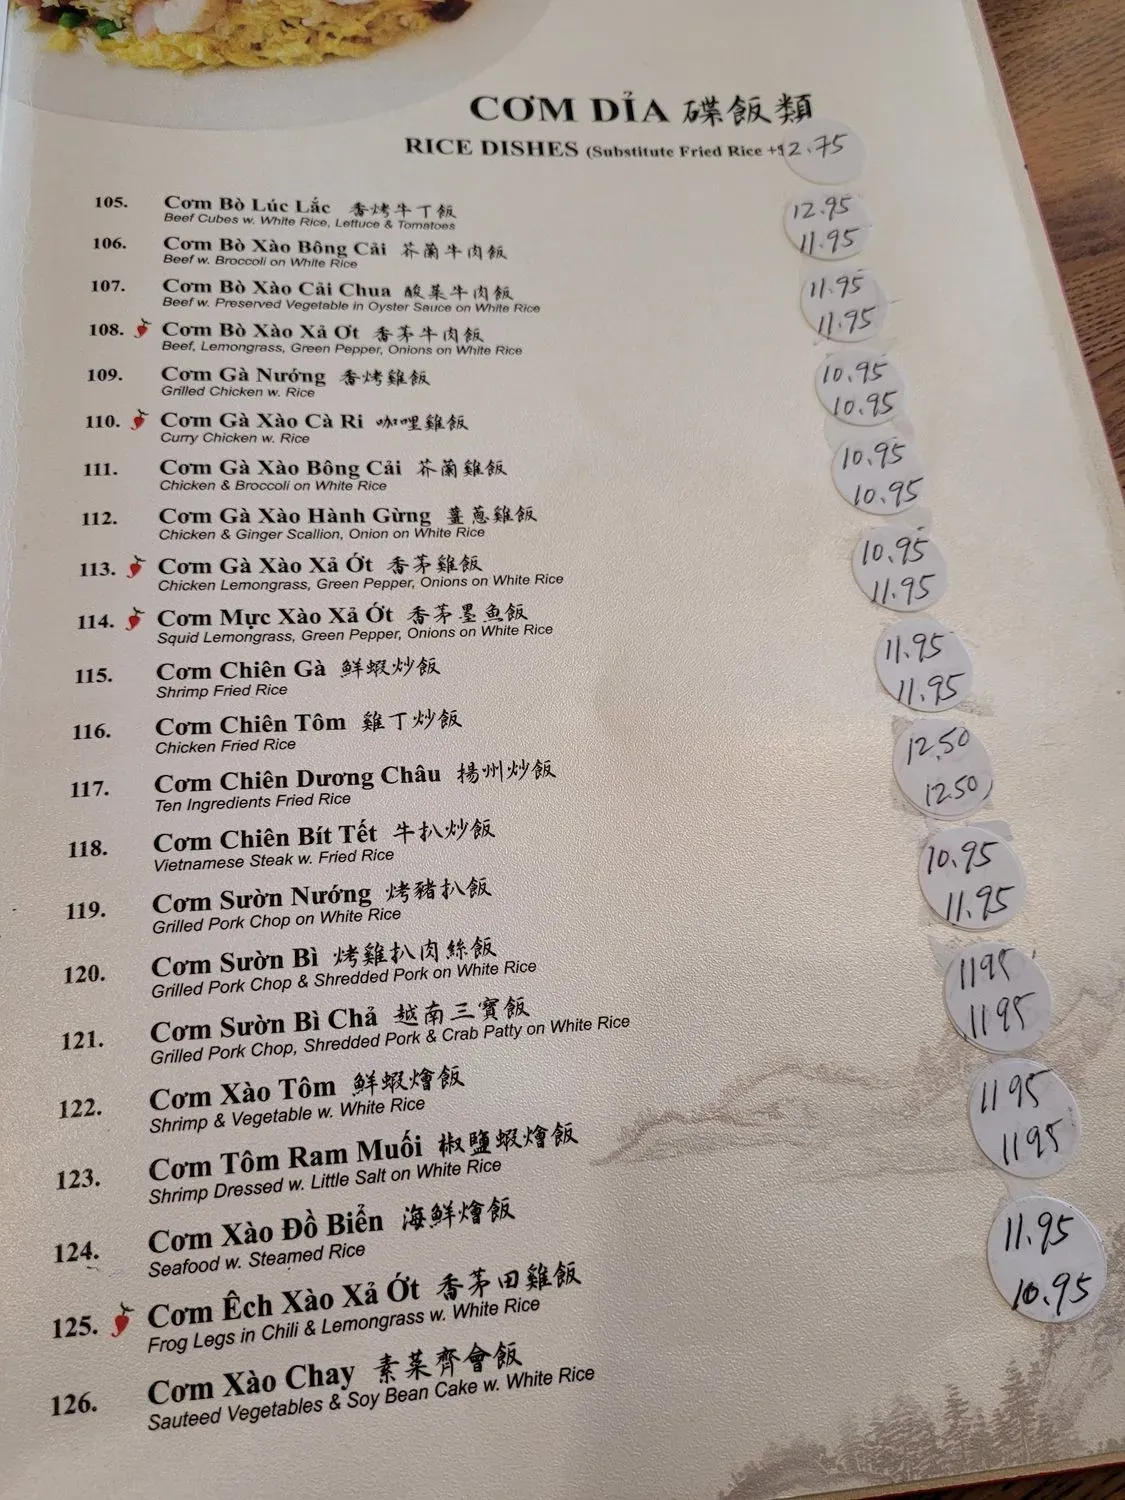 CƠM DỈA 碟飯類
RICE DISHES (Substitute Fried Rice +$2.75
105. Cơm Bò Lúc Lắc 香烤牛丁飯 12.95
Beef Cubes w. White Rice, Lettuce & Tomatoes
106. Cơm Bò Xào Bông Cải 芥蘭牛肉飯 11.95
Beef w. Broccoli on White Rice
107. Cơm Bò Xào Cải Chua 酸菜牛肉飯 11.95
Beef w. Preserved Vegetable in Oyster Sauce on White Rice
108. Cơm Bò Xào Xả Ơt 香茅牛肉飯 11.95
Beef, Lemongrass, Green Pepper, Onions on White Rice
109. Cơm Gà Nướng 香烤雞飯 10.95
Grilled Chicken w. Rice
110. Cơm Gà Xào Cà Ri 咖哩雞飯 10.95
Curry Chicken w. Rice
111. Cơm Gà Xào Bông Cải 芥蘭雞飯 10.95
Chicken & Broccoli on White Rice
112. Cơm Gà Xào Hành Gừng 薑蔥雞飯 10.95
Chicken & Ginger Scallion, Onion on White Rice
113. Cơm Gà Xào Xả Ớt 香茅雞飯 10.95
Chicken Lemongrass, Green Pepper, Onions on White Rice
114. Cơm Mực Xào Xả Ớt 香茅墨魚飯 11.95
Squid Lemongrass, Green Pepper, Onions on White Rice
115. Cơm Chiên Gà 鮮蝦炒飯 11.95
Shrimp Fried Rice
116. Cơm Chiên Tôm 雞丁炒飯 11.95
Chicken Fried Rice
117. Cơm Chiên Dương Châu 揚州炒飯 12.50
Ten Ingredients Fried Rice
118. Cơm Chiên Bít Tết 牛扒炒飯 12.50
Vietnamese Steak w. Fried Rice
119. Cơm Sườn Nướng 烤豬扒飯 10.95
Grilled Pork Chop on White Rice
120. Cơm Sườn Bì 烤雞扒肉絲飯 11.95
Grilled Pork Chop & Shredded Pork on White Rice
121. Cơm Sườn Bì Chả 越南三寶飯 1195
Grilled Pork Chop, Shredded Pork & Crab Patty on White Rice
122. Cơm Xào Tôm 鮮蝦燴飯 1195
Shrimp & Vegetable w. White Rice
123. Cơm Tôm Ram Muối 椒鹽蝦燴飯 1195
Shrimp Dressed w. Little Salt on White Rice
124. Cơm Xào Đồ Biển 海鮮燴飯 1195
Seafood w. Steamed Rice
125. Cơm Êch Xào Xả Ớt 香茅田雞飯 11.95
Frog Legs in Chili & Lemongrass w. White Rice
126. Cơm Xào Chay 素菜齊會飯 10.95
Sauteed Vegetables & Soy Bean Cake w. White Rice